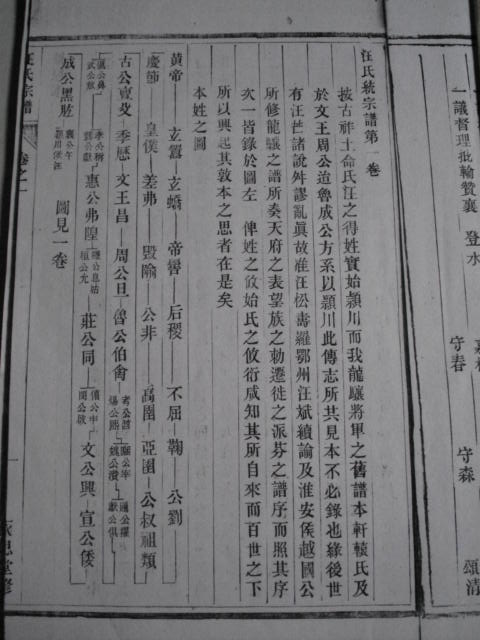 一議督理批輪贊襄
登水
嘉
守春
守森
頌清
汪氏統宗譜第一卷
按古祚土命氏汪之得姓實始潁川而我龍驤將軍之舊譜本軒轅氏及
於文王周公迨魯成公方系以潁川此傳志所共見本不必錄也緣後世
有汪芒諸說舛謬亂真故准汪松壽羅鄂州汪斌續論及淮安侯越國公
所修龍驤之譜所奏天府之表望族之勅遷徙之派芬之譜序而照其序
次一皆錄於圖左 俾姓之攸始氏之攸衍咸知其所自來而百世之下
所以興起其敦本之思者在是矣
本姓之圖
黃帝 玄囂 玄蟜 帝嚳 后稷 不屈 鞠 公劉
慶節 皇僕 差弗 毀隃 公非 高圉 亞圉 公叔祖類
古公亶父 季歷 文王昌 周公旦 魯公伯禽 考公酋 煬公熙 幽公宰 魏公潰 厲公擢 獻公俱
真公鼻 武公敖 孝公稱 懿公戲 惠公弗隍 隱公息姑 桓公允 莊公同 僖公申 閔公啟 文公興 宣公倭
成公黑肱 襄公午 潁川侯汪 圖見一卷
汪氏宗譜
卷之一